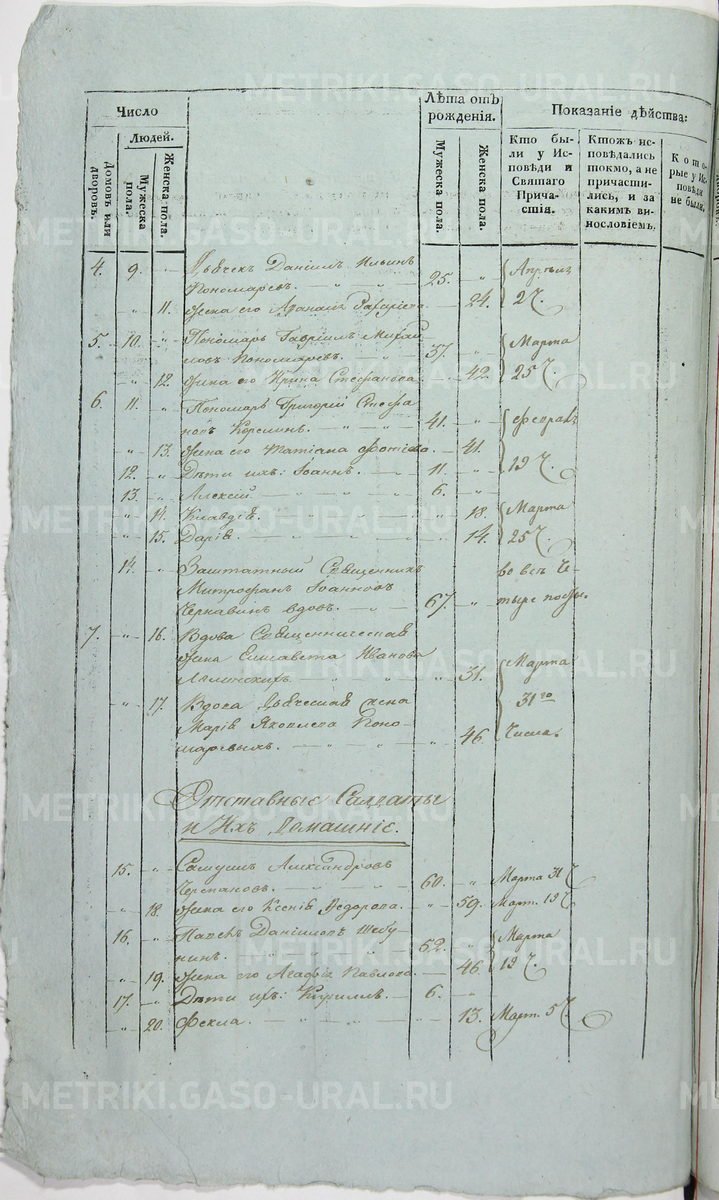 Число
Людей.
Домовъ или дворовъ.
Мужеска пола.
Женска пола.
Лѣта отъ рожденія.
Мужеска пола.
Женска пола.
Показаніе дѣйства:
Кто были у Исповѣди и Святаго Причастія.
Ктожъ исповѣдались токмо, а не причастились, и за какимъ винословіемъ.
Которые у Исповѣди не были.
4. 9. Даніилъ Ильинъ
Пономаревъ. 25. Апрѣля
11. Жена его 24. 27.
5. 10. Пономарь Гавріилъ Михай-
ловъ Пономаревъ. 57. Марта
12. Жена его Ирина Стефанова 42. 25.
6. 11. Пономарь Григорій Стефа-
новъ 41. Февраля
13. Жена его Татіана 41.
12. Дѣти ихъ: Іоаннъ. 11. 19.
13. Алексій 6.
14. Клавдія. 18. Марта
15. Дарія 14. 25.
14. Заштатный Священникъ во всѣ че-
Митрофанъ Іоанновъ
Чернавинъ вдовъ. 67. тыре посты.
7. 16. Вдова Священническая
жена Елисавета Иванова 31. Марта
31го
17. Вдова жена
Марія Яковлева Поно-
маревыхъ. 46. Числа.
Отставные Солдаты
и Ихъ Домашніе.
15. Самуилъ Александровъ
Черепановъ. 60. Марта 31
18. Жена его Ксенія Ѳедорова. 59. Март. 19
16. Павелъ Данииловъ Шебу-
нинъ. 52. Марта
19. Жена его Агафья Павлова. 46. 19.
17. Дѣти ихъ: Кириллъ. 6.
20. Фекла 13. Март. 5
METRIKI.GASO-URAL.RU